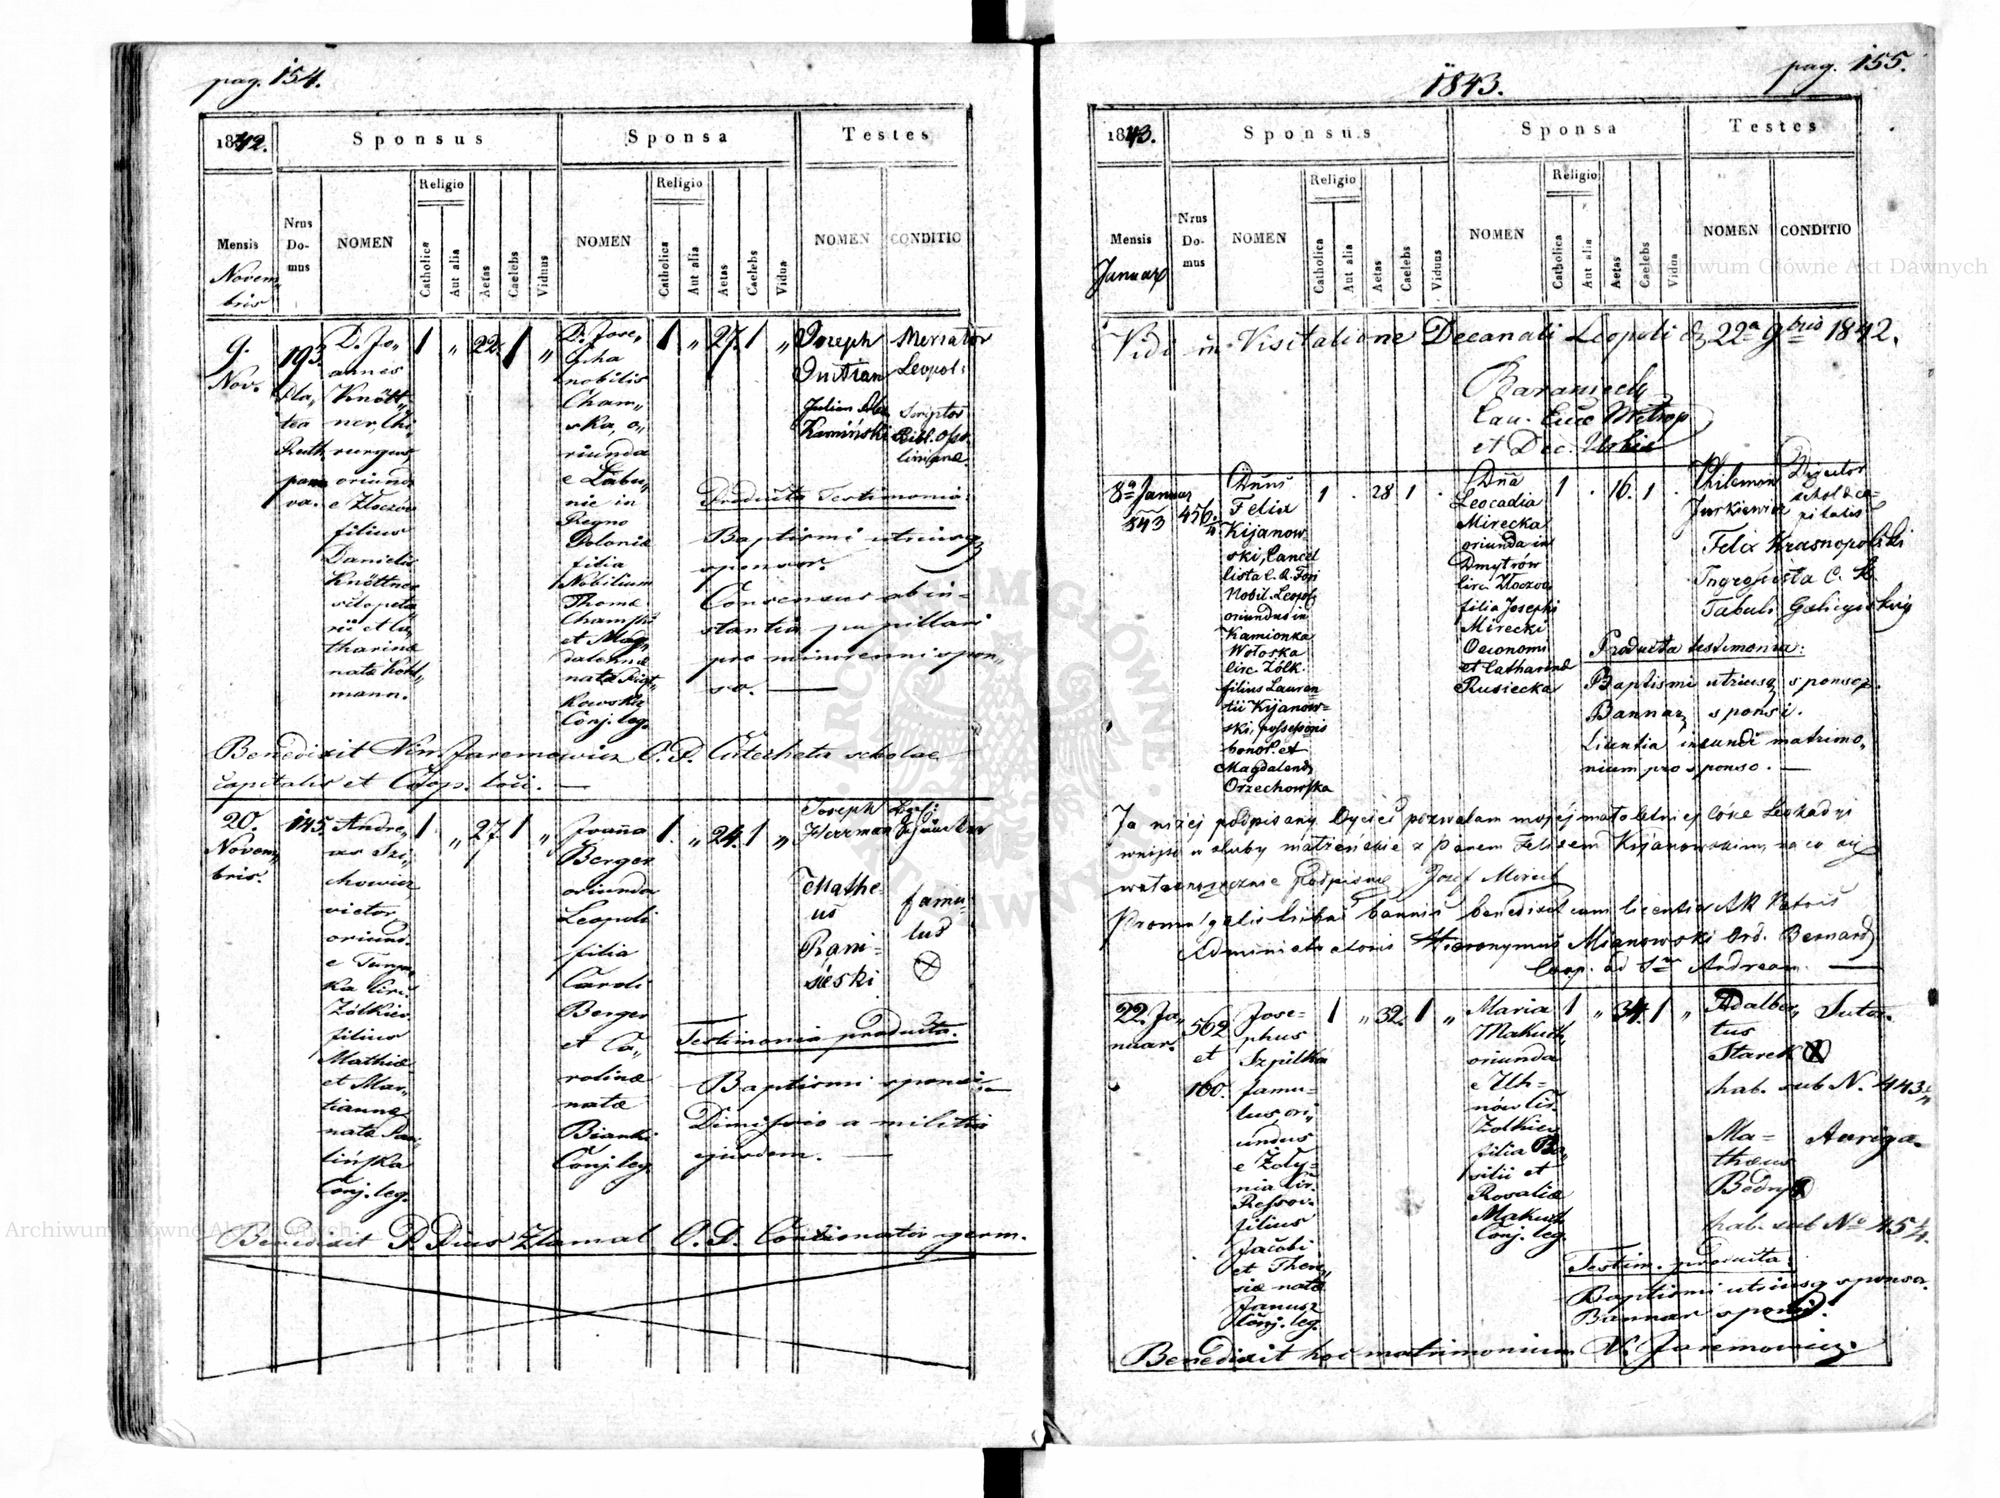 pag. 154.
1842.
Sponsus
Sponsa
Testes
Mensis
Novem,,
bris
Nrus
Do-
mus
NOMEN
Religio
Catholica
Aut alia
Aetas
Caelebs
Viduus
NOMEN
Religio
Catholica
Aut alia
Aetas
Caelebs
Vidua
NOMEN
CONDITIO
9.
Nov.
193
Pla,,
tea
Ruth.
parva.
D. Jo,,
annes
Knött,,
ner, Chi,,
rurgus
oriund.
e Złoczów
filius
Danielis
Knöttner
et Ca,,
tharinæ
natæ
mann.
1
"
22.
1
"
D. Jose,,
pha
nobilis
Cham,,
ska, o,,
riunda
e Łabu,,
nie in
Regno
Poloniæ
filia
Nobilium
Thomæ
Chamski
et Mag,,
dalennæ
natæ
kowska
Conj. leg.
1
"
27.
1
"
Joseph
Mercator
Leopol:
Julian
Kamiński
Scriptor
Bibl. Osso,,
linianæ.
Producta Testimonia:
Baptismi utriusq
sponsor.
Consensus ab in=
stantia pupillari
pro minorenni spon,,
so. —
Benedixit Vin. Jaremowicz O. P. Catecheta scholae
capitalis et Coop. loci. —
20.
Novem,,
bris.
145.
Andre,,
as Szi,,
chowicz
victor,
oriund.
e Turyn,,
ka Circ.
Żółkiew
filius
Mathiæ
et Mar,,
tiannæ
natæ Pau,,
lińska
Conj. leg.
1
"
27.
1
"
Joanna
Berger
oriunda
Leopoli
filia
Caroli
Berger
et Ca,,
rolinæ
natæ
Bianki
Conj. leg.
1.
"
24.
1
"
Joseph
Herrman
Mathe=
us
Rani=
sieski
famu=
lus
Testimonia producta.
Baptismi sponsi. —
Dimissio a militia
ejusdem. —
Benedixit P. Pius Zlamal O. P. Contionator germ.
pag. 155.
1843.
1843.
Sponsus
Sponsa
Testes
Mensis
Januar
Nrus
Do-
mus
NOMEN
Religio
Catholica
Aut alia
Aetas
Caelebs
Viduus
NOMEN
Religio
Catholica
Aut alia
Aetas
Caelebs
Vidua
NOMEN
CONDITIO
Vidi in Visitatione Decanali Leopoli d. 22a 9bris 1842.
Baraniecki
Can. Metrop
et Dec. Urbis
8a Januar
843
456.
Dnus
Felix
Kijanow
ski, Cancel
lista C. R. Fori
Nobil. Leopol
oriundus in
Kamionka
Wołoska
Circ. Żólk.
filius Lauren
tii Kijanow=
ski, possessoris
bonor. et
Magdalenæ
Orzechowska
1
.
28
1
.
Dna
Leocadia
Mirecka
oriunda in
Dmytrów
Circ. Złoczov
filia Josephi
Mirecki
Oeconomi
et Catharinæ
Rusiecka
1
.
16.
1
.
Philemon
Jurkiewicz
Director
scholæ ca=
pitalis
Felix Krasnopolski
Ingrossista C. R.
Tabul. Galicyjskiej
Producta testimonia:
Baptismi utriusq sponsor.
Bannar. sponsi.
Licentia ineundi matrimo,,
nium pro sponso. —
Ja niżej podpisany Oyciec pozwalam mojej małoletniej córce Leokadyi
wnijść w śluby małżeńskie z Panem Felixem Kijanowskim, na co się
własnoręcznie podpisuję Józef Mirecki
Promulgatis tribus bannis benedixit cum licentia AR Patris
Administratoris Hieronymus Mianowski Ord. Bernard
Coop. ad Stum Andream. —
22. Ja,,
nuar.
562
et
160.
Jose=
phus
Szpilka
famu=
lus ori,,
undus
e Żoły=
nia Cir.
Ressov.
filius
Jacobi
et There,,
siæ natæ
Janusz
Conj. leg.
1
"
32.
1
"
Maria
Makuch
oriunda
e Uh=
nów Cir.
Żolkiew
filia Ba,,
silii et
Rosaliæ
Makuch
Conj. leg.
1
"
34.
1
"
Adalber,,
tus
Starek
Sutor.
hab. sub N. 443
Ma=
thæus
Auriga.
hab. sub No 45
Testim. producta:
Baptismi utriusq sponsor.
Bannar sponsi.
Benedixit hoc matrimonium V. Jaremowicz.
Archiwum Główne Akt Dawnych
Archiwum Główne Akt Dawnych
ARCHIWUM GŁÓWNE AKT DAWNYCH